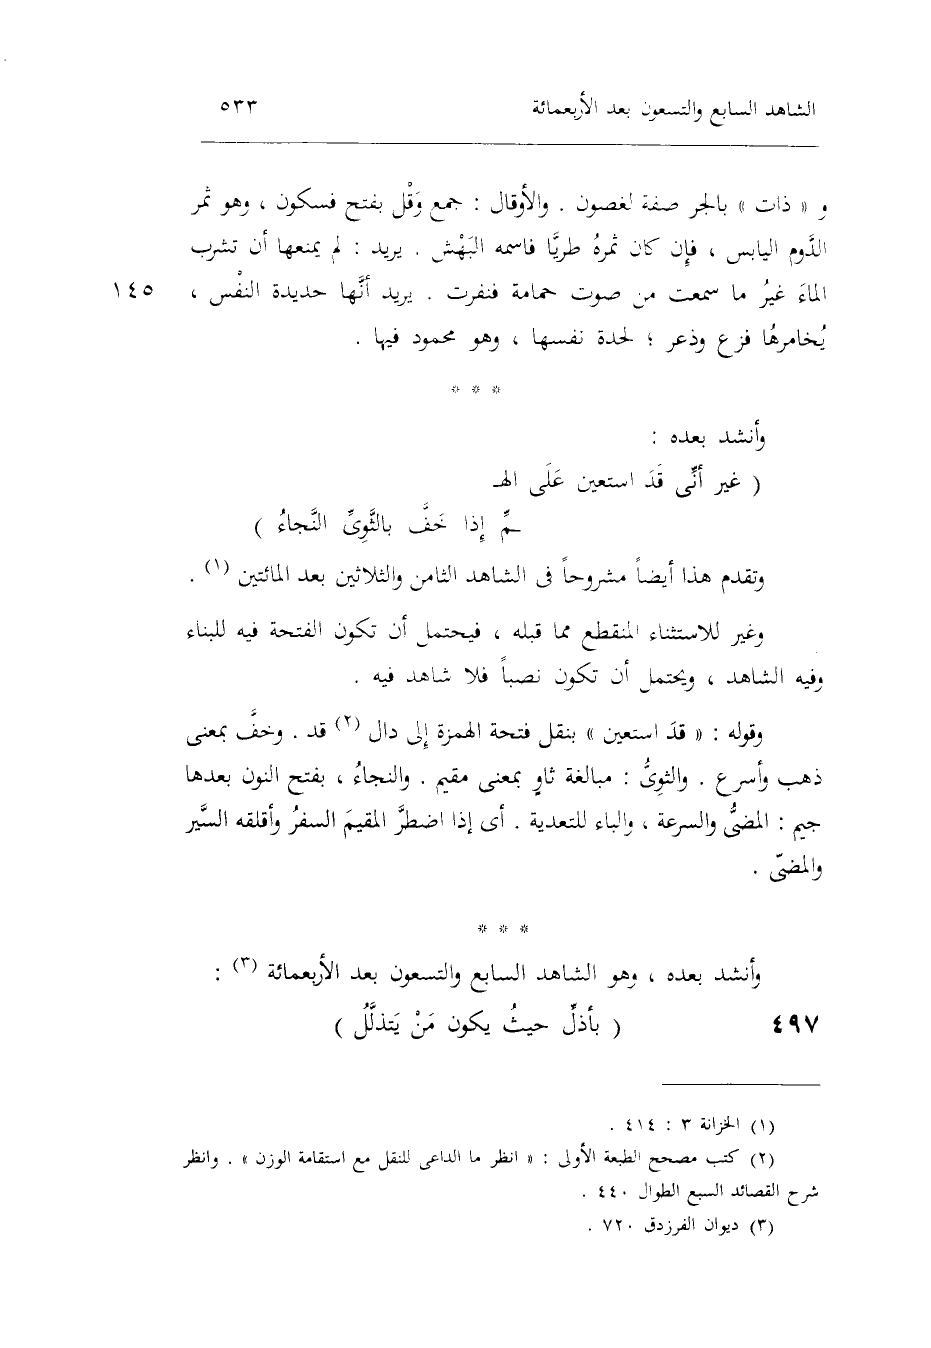 الشاهد السابع والتسعون بعد الأربعمائة ٥٣٣
و « ذات » بالجر صفة لغصون . والأوقال : جمع وَقْل بفتح فسكون ، وهو ثمر
الدَّوم اليابس ، فإن كان ثمرهُ طريًّا فاسمه البَهْش . يريد : لم يمنعها أن تشرب
الماءَ غيرُ ما سمعت من صوت حمامة فنفرت . يريد أنَّها حديدة النفْس ، ١٤٥
يُخامرهُا فزع وذعر ؛ لحدة نفسها ، وهو محمود فيها .
* * *
وأنشد بعده :
( غير أنِّى قَدَ استعين عَلَى الهـ
ـمِّ إذا خَفَّ بالثَّوِىِّ النَّجاءُ )
وتقدم هذا أيضاً مشروحاً فى الشاهد الثامن والثلاثين بعد المائتين (١) .
وغير للاستثناء المنقطع مما قبله ، فيحتمل أن تكون الفتحة فيه للبناء
وفيه الشاهد ، ويحتمل أن تكون نصباً فلا شاهد فيه .
وقوله : « قدَ استعين » بنقل فتحة الهمزة إلى دال (٢) قد . وخفَّ بمعنى
ذهب وأسرع . والثوِىُّ : مبالغة ثاوٍ بمعنى مقيم . والنجاءُ ، بفتح النون بعدها
جيم : المضىُّ والسرعة ، والباء للتعدية . أى إذا اضطرَّ المقيمَ السفرُ وأقلقه السَّير
والمضىّ .
* * *
وأنشد بعده ، وهو الشاهد السابع والتسعون بعد الأربعمائة (٣) :
٤٩٧ ( بأذلِّ حيثُ يكون مَنْ يَتذلَّلُ )
(١) الخزانة ٣ : ٤١٤ .
(٢) كتب مصحح الطبعة الأولى : « انظر ما الداعى للنقل مع استقامة الوزن » . وانظر
شرح القصائد السبع الطوال ٤٤٠ .
(٣) ديوان الفرزدق ٧٢٠ .